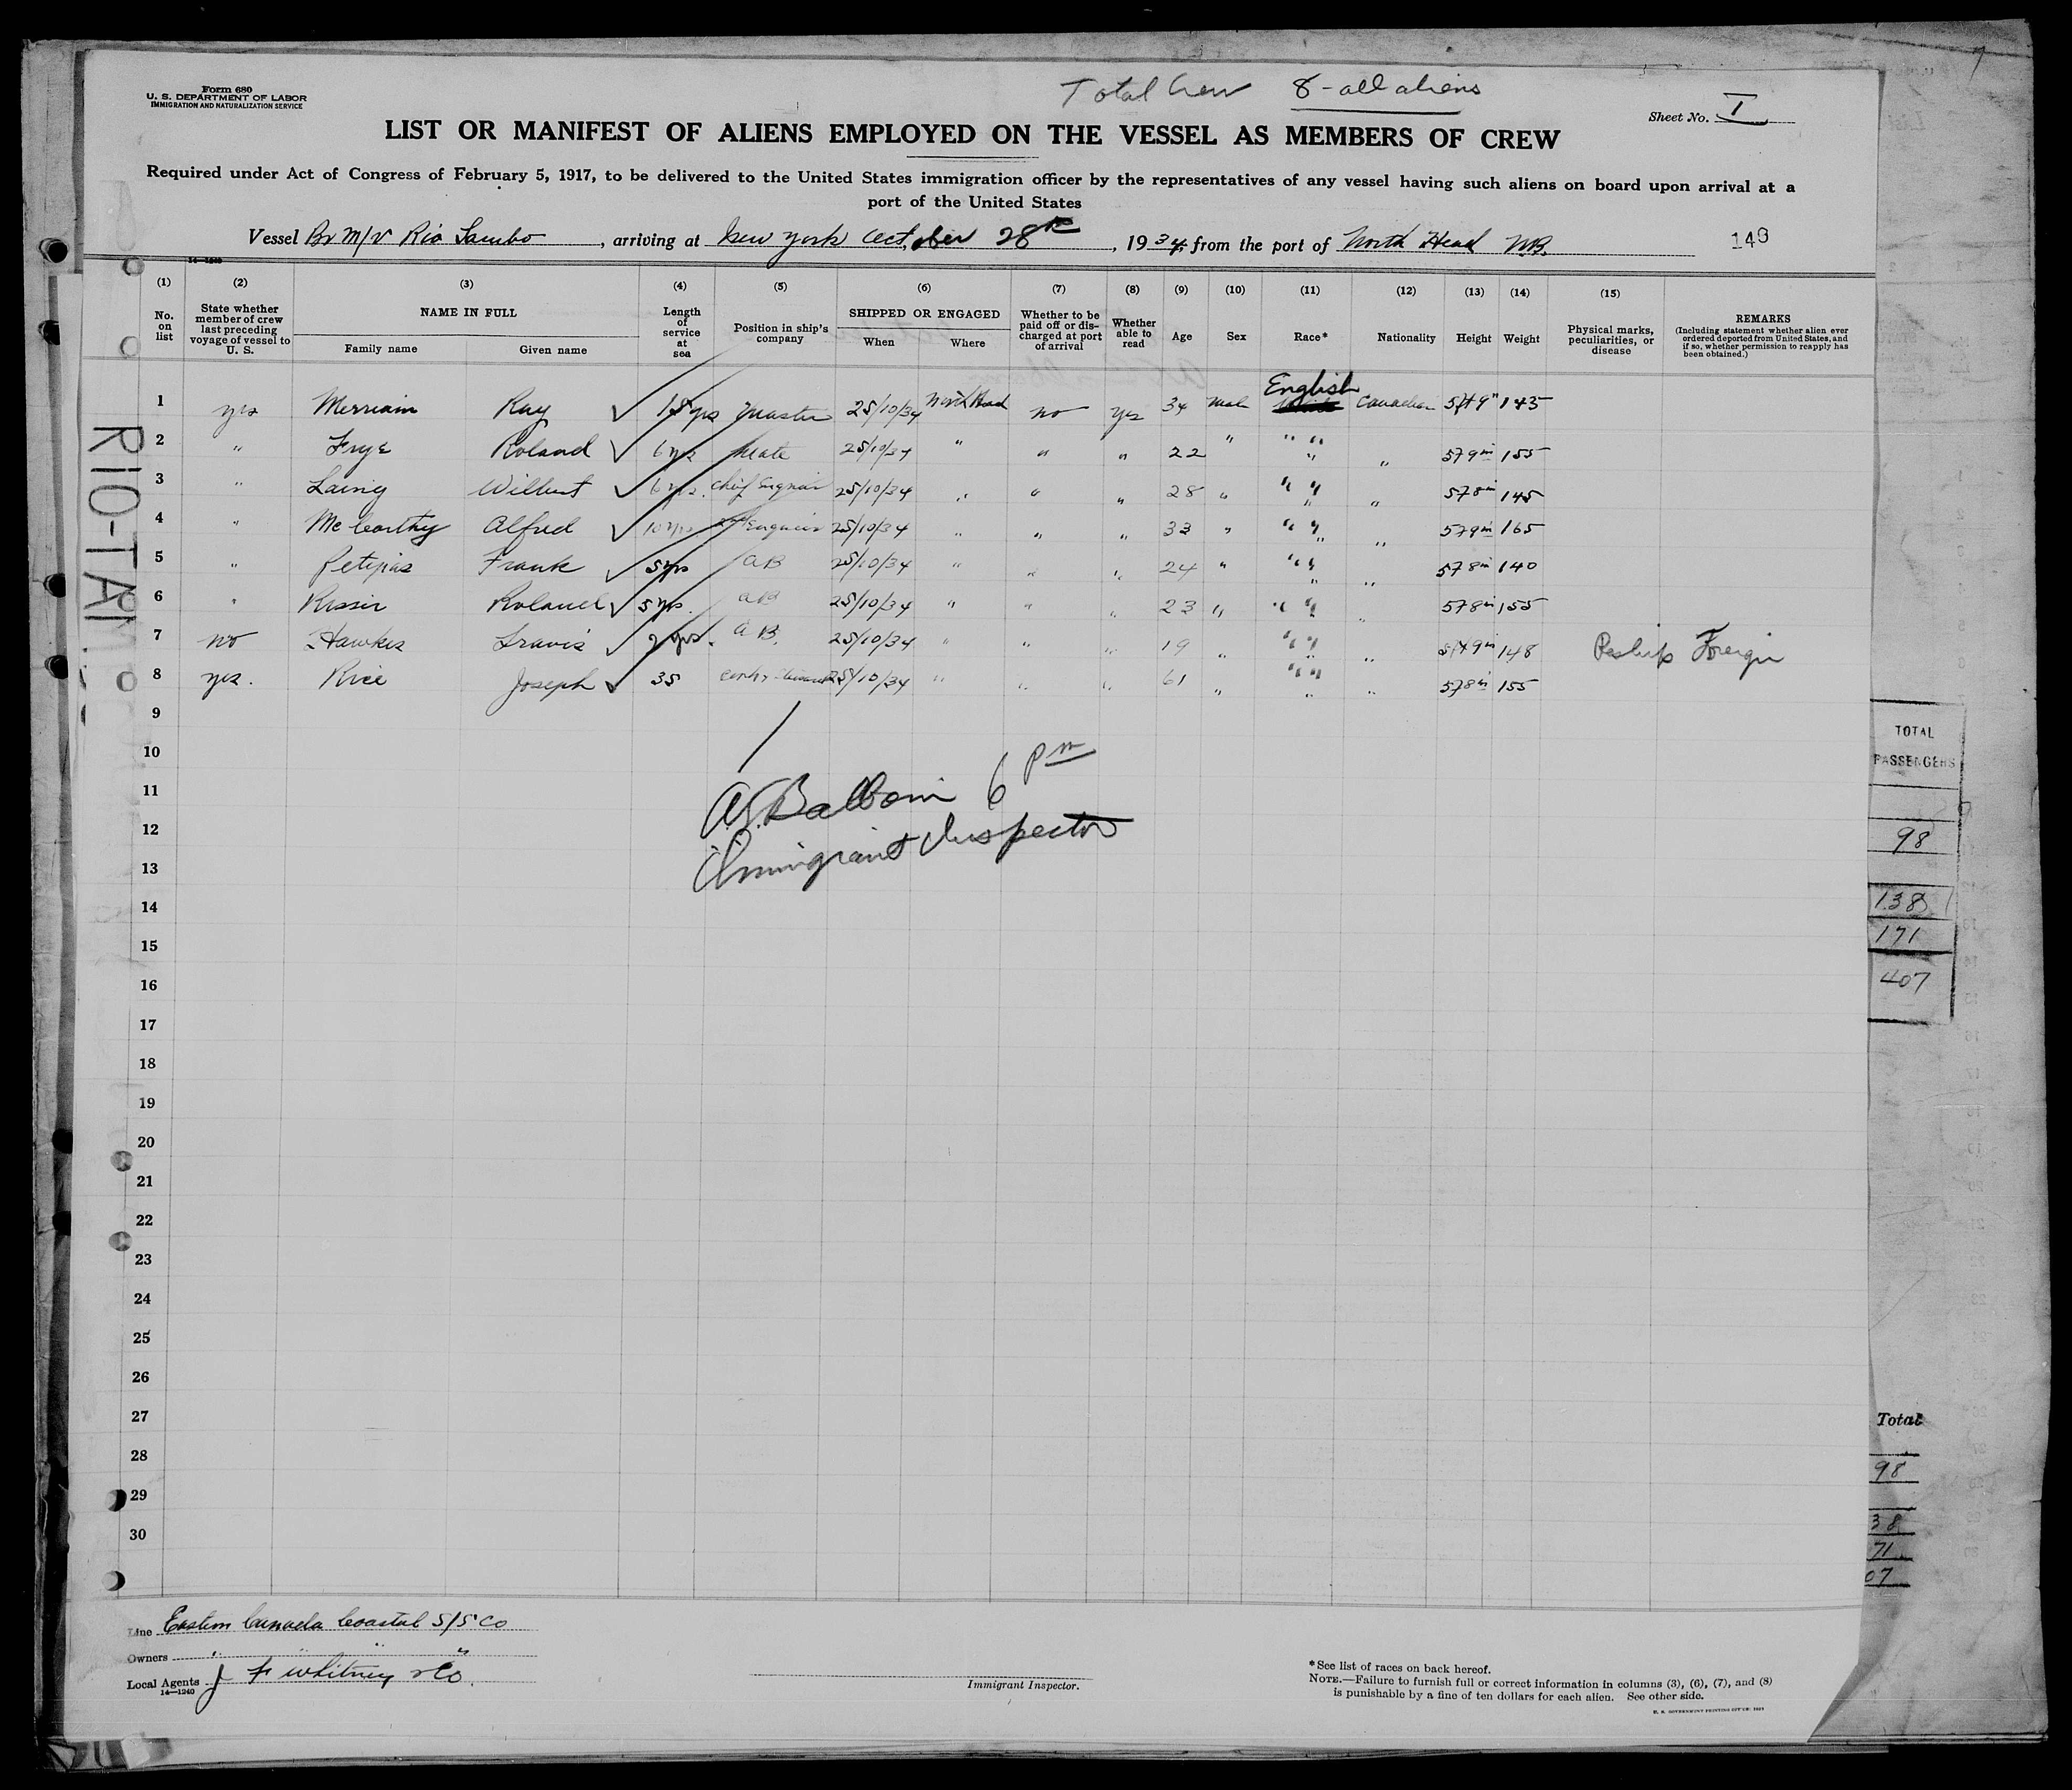 Total Crew 8 - all aliens
Form 680
U. S. DEPARTMENT OF LABOR
IMMIGRATION AND NATURALIZATION SERVICE
Sheet No. I
LIST OR MANIFEST OF ALIENS EMPLOYED ON THE VESSEL AS MEMBERS OF CREW
Required under Act of Congress of February 5, 1917, to be delivered to the United States immigration officer by the representatives of any vessel having such aliens on board upon arrival at a
port of the United States
Vessel Br M/V Rio Tambo, arriving at New York October 28th, 1934, from the port of North Head N.B.
149
14-1240
(1) (2) (3) (4) (5) (6) (7) (8) (9) (10) (11) (12) (13) (14) (15)
No. on list
State whether member of crew last preceding voyage of vessel to U. S.
NAME IN FULL
Family name Given name
Length of service at sea
Position in ship's company
SHIPPED OR ENGAGED
When Where
Whether to be paid off or discharged at port of arrival
Whether able to read
Age
Sex
Race*
Nationality
Height
Weight
Physical marks, peculiarities, or disease
REMARKS
(Including statement whether alien ever ordered deported from United States, and if so, whether permission to reapply has been obtained.)
English
1 yes Merriam Ray ✓ 15 yrs Master 25/10/34 North Head no yes 34 Male Canadian 5ft 9" 145
2 " Frye Roland ✓ 6 yrs Mate 25/10/34 " " " 22 " " " " 5 7 9 in 155
3 " Laing Wilbert ✓ 6 yrs. Chief Engineer 25/10/34 " " " 28 " " " " 5 7 8 in 145
4 " McCarthy Alfred ✓ 10 yrs 2nd Engineer 25/10/34 " " " 33 " " " " 5 7 9 in 165
5 " Petipas Frank ✓ 5 yrs AB 25/10/34 " " " 24 " " " " 5 7 8 in 140
6 " Roland ✓ 5 yrs. AB 25/10/34 " " " 23 " " " " 5 7 8 in 155
7 no Hawkes Travis ✓ 2 yrs. AB. 25/10/34 " " " 19 " " " " 5ft 9 in 148 Reships Foreign
8 yes. Rice Joseph ✓ 35 25/10/34 " " " 61 " " " " 5 7 8 in 155
9
10
11
12
13
14
15
16
17
18
19
20
21
22
23
24
25
26
27
28
29
30
6 PM
Immigrant Inspector
RIO-TA
TOTAL
PASSENGERS
98
138
171
407
Total
98
38
71
07
Line Eastern Canada Coastal S/S Co
Owners " " "
Local Agents J F Whitney & Co.
14-1240
Immigrant Inspector.
*See list of races on back hereof.
NOTE.—Failure to furnish full or correct information in columns (3), (6), (7), and (8)
is punishable by a fine of ten dollars for each alien. See other side.
U. S. GOVERNMENT PRINTING OFFICE: 1934